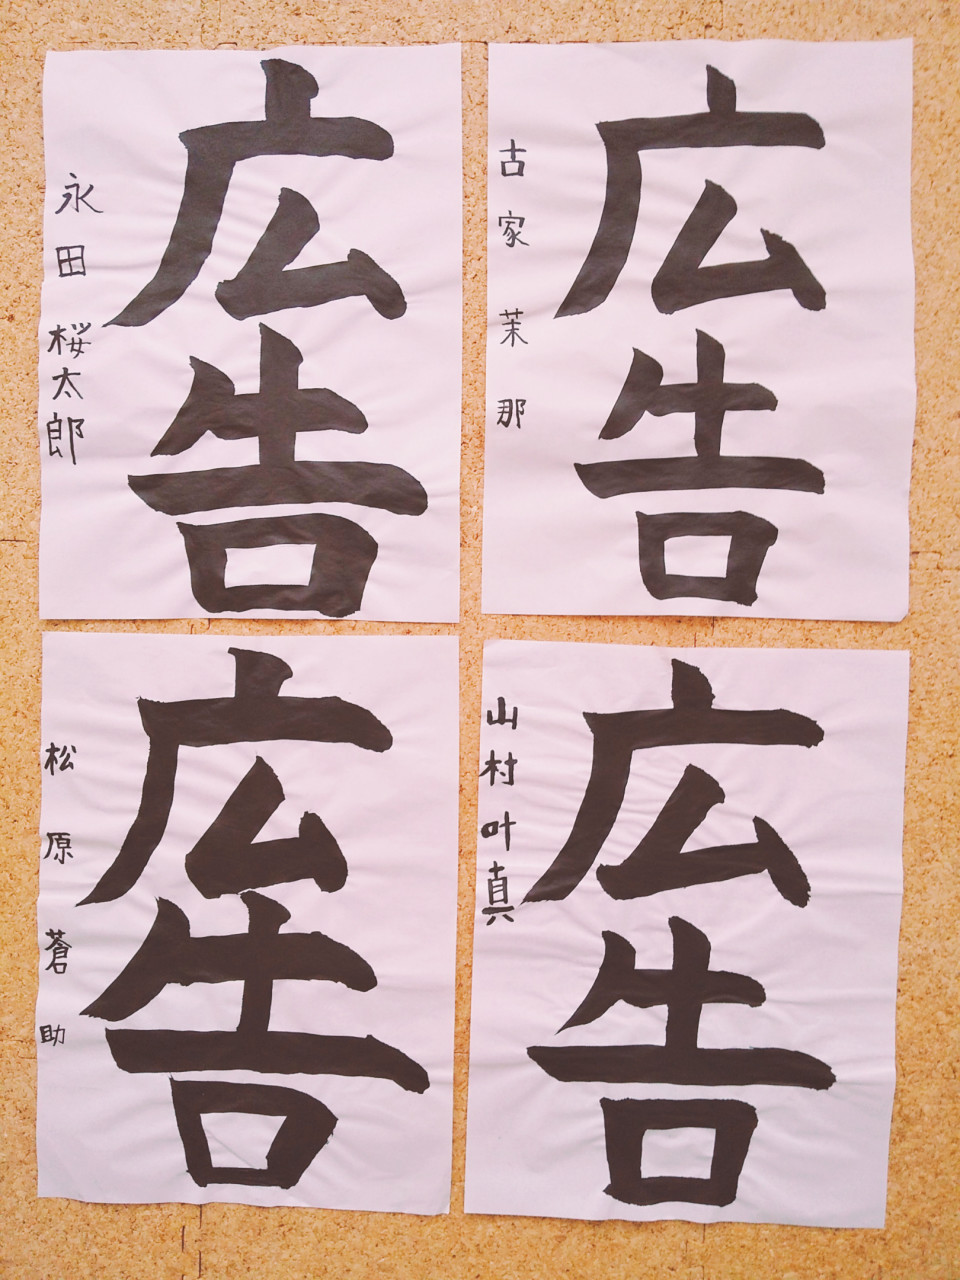 広告
永田桜太郎
広告
古家茉那
広告
松原蒼助
広告
山村叶真